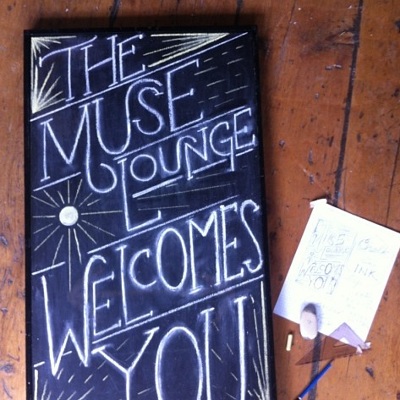 THE
MUSE
LOUNGE
WELCOMES
YOU
INK